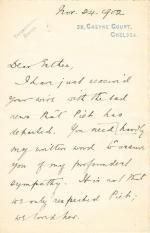 Nov. 24. 1902
32, CHEYNE COURT,
CHELSEA.
Dear Esther,
I have just received
your wire with the sad
news that Piet has
departed. You need hardly
my written word to assure
you of my profoundest
sympathy. It is not that
we only respected Piet;
we loved her.